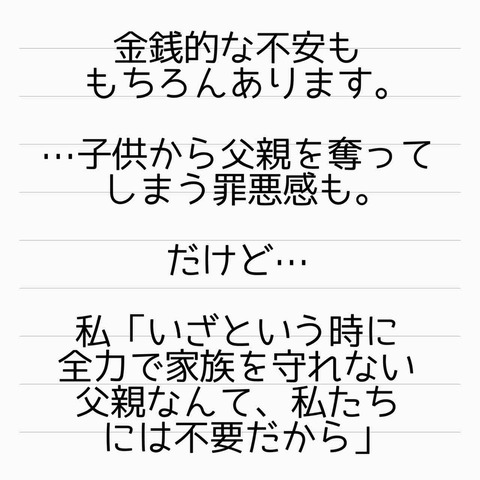 金銭的な不安も
もちろんあります。
…子供から父親を奪って
しまう罪悪感も。
だけど…
私「いざという時に
全力で家族を守れない
父親なんて、私たち
には不要だから」